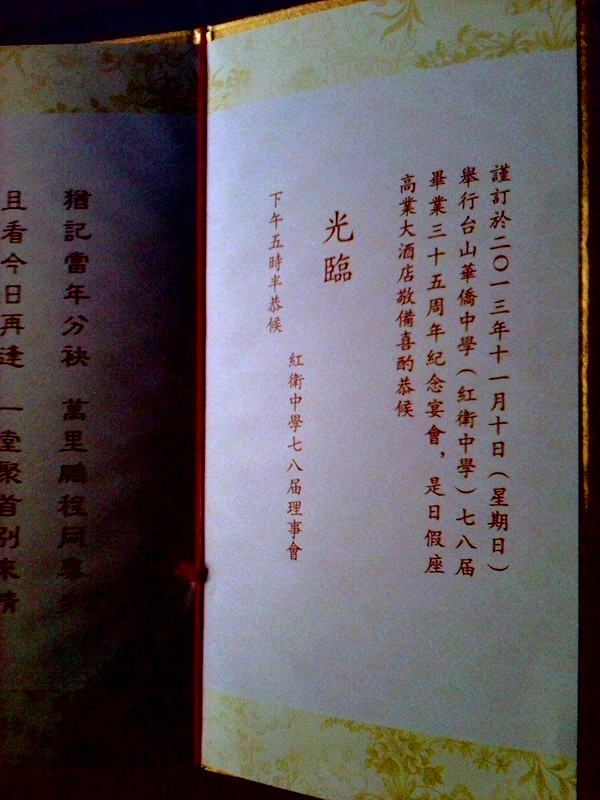 謹訂於二〇一三年十一月十日（星期日）
舉行台山華僑中學（紅衛中學）七八届
畢業三十五周年紀念宴會，是日假座
高業大酒店敬備喜酌恭候
光臨
下午五時半恭候
紅衛中學七八届理事會
猶記當年分袂 萬里鵬程同
且看今日再逢 一堂聚首別來情